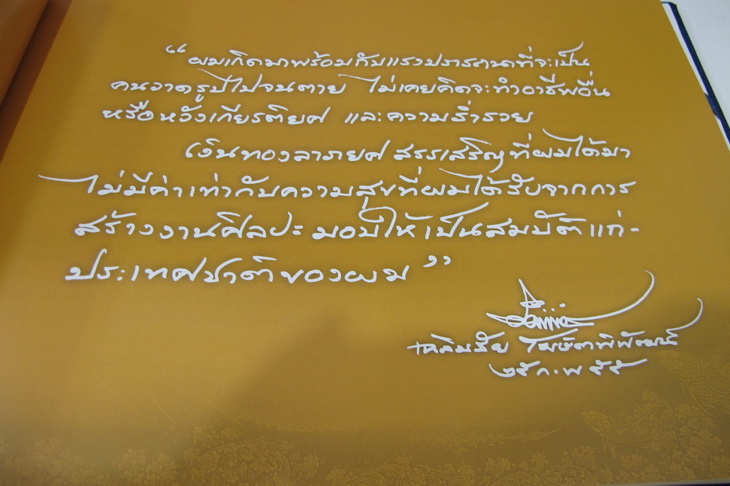 “ ผมเกิดมาพร้อมกับแรงปรารถนาที่จะเป็น
คนวาดรูปไปจนตาย ไม่เคยคิดจะทำอาชีพอื่น
หรือหวังเกียรติยศ และความร่ำรวย
เงินทองลาภยศ สรรเสริญที่ผมได้มา
ไม่มีค่าเท่ากับความสุขที่ผมได้รับจากการ
สร้างงานศิลปะ มอบให้เป็นสมบัติแก่-
ประเทศชาติของผม ”
เฉลิมชัย โฆษิตพิพัฒน์